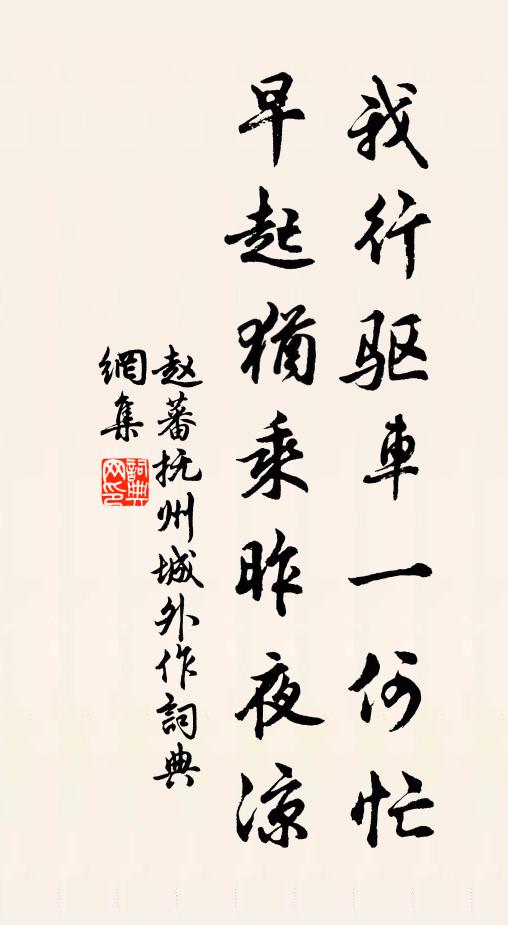 我行驱車一何忙
早起猶乘昨夜凉
赵蕃抚州城外作詞典
網集
詞典
网印